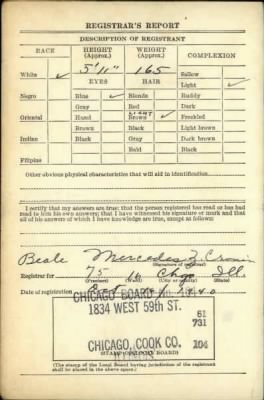 REGISTRAR'S REPORT
DESCRIPTION OF REGISTRANT
RACE HEIGHT (Approx.) WEIGHT (Approx.) COMPLEXION
5' 11" 165
White ✓ Sallow
EYES HAIR Light ✓
Negro Blue ✓ Blonde Ruddy
Gray Red Dark
LIGHT
Oriental Hazel Brown ✓ Freckled
Brown Black Light brown
Indian Black Gray Dark brown
Bald Black
Filipino
Other obvious physical characteristics that will aid in identification
I certify that my answers are true; that the person registered has read or has had
read to him his own answers; that I have witnessed his signature or mark and that
all of his answers of which I have knowledge are true, except as follows:
Beale Mercedes
(Signature of registrar)
Registrar for 75 16 Chgo Ill.
(Precinct) (Ward) (City or county) (State)
Date of registration Oct 1940
CHICAGO BOARD NO.
1834 WEST 59th ST.
61
731
CHICAGO, COOK CO. 104
ILLINOIS
(STAMP OF LOCAL BOARD)
(The stamp of the Local Board having jurisdiction of the registrant
shall be placed in the above space.)